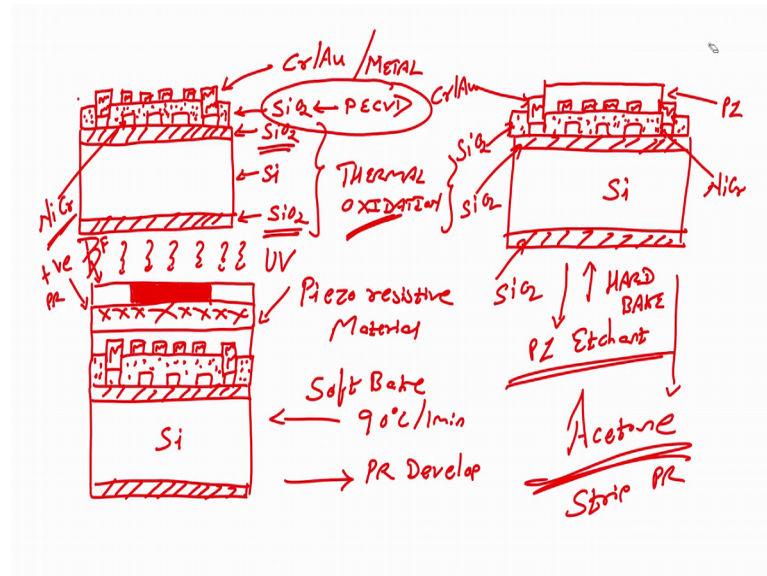 Cr/Au/METAL
SiO2 ← PECVD
SiO2
Si
SiO2
THERMAL
OXIDATION
NiCr
BF
UV
+ve
PR
Piezo resistive
Material
Si
Soft Bake
90°C/1min
PR Develop
Cr/Au
PZ
SiO2
SiO2
Si
NiCr
SiO2
HARD
BAKE
PZ Etchant
Acetone
Strip PR